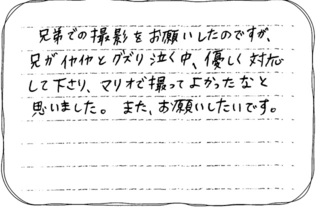 兄弟での撮影をお願いしたのですが、
兄がイヤイヤとグズり泣く中、優しく対応
して下さり、マリオで撮ってよかったなと
思いました。また、お願いしたいです。